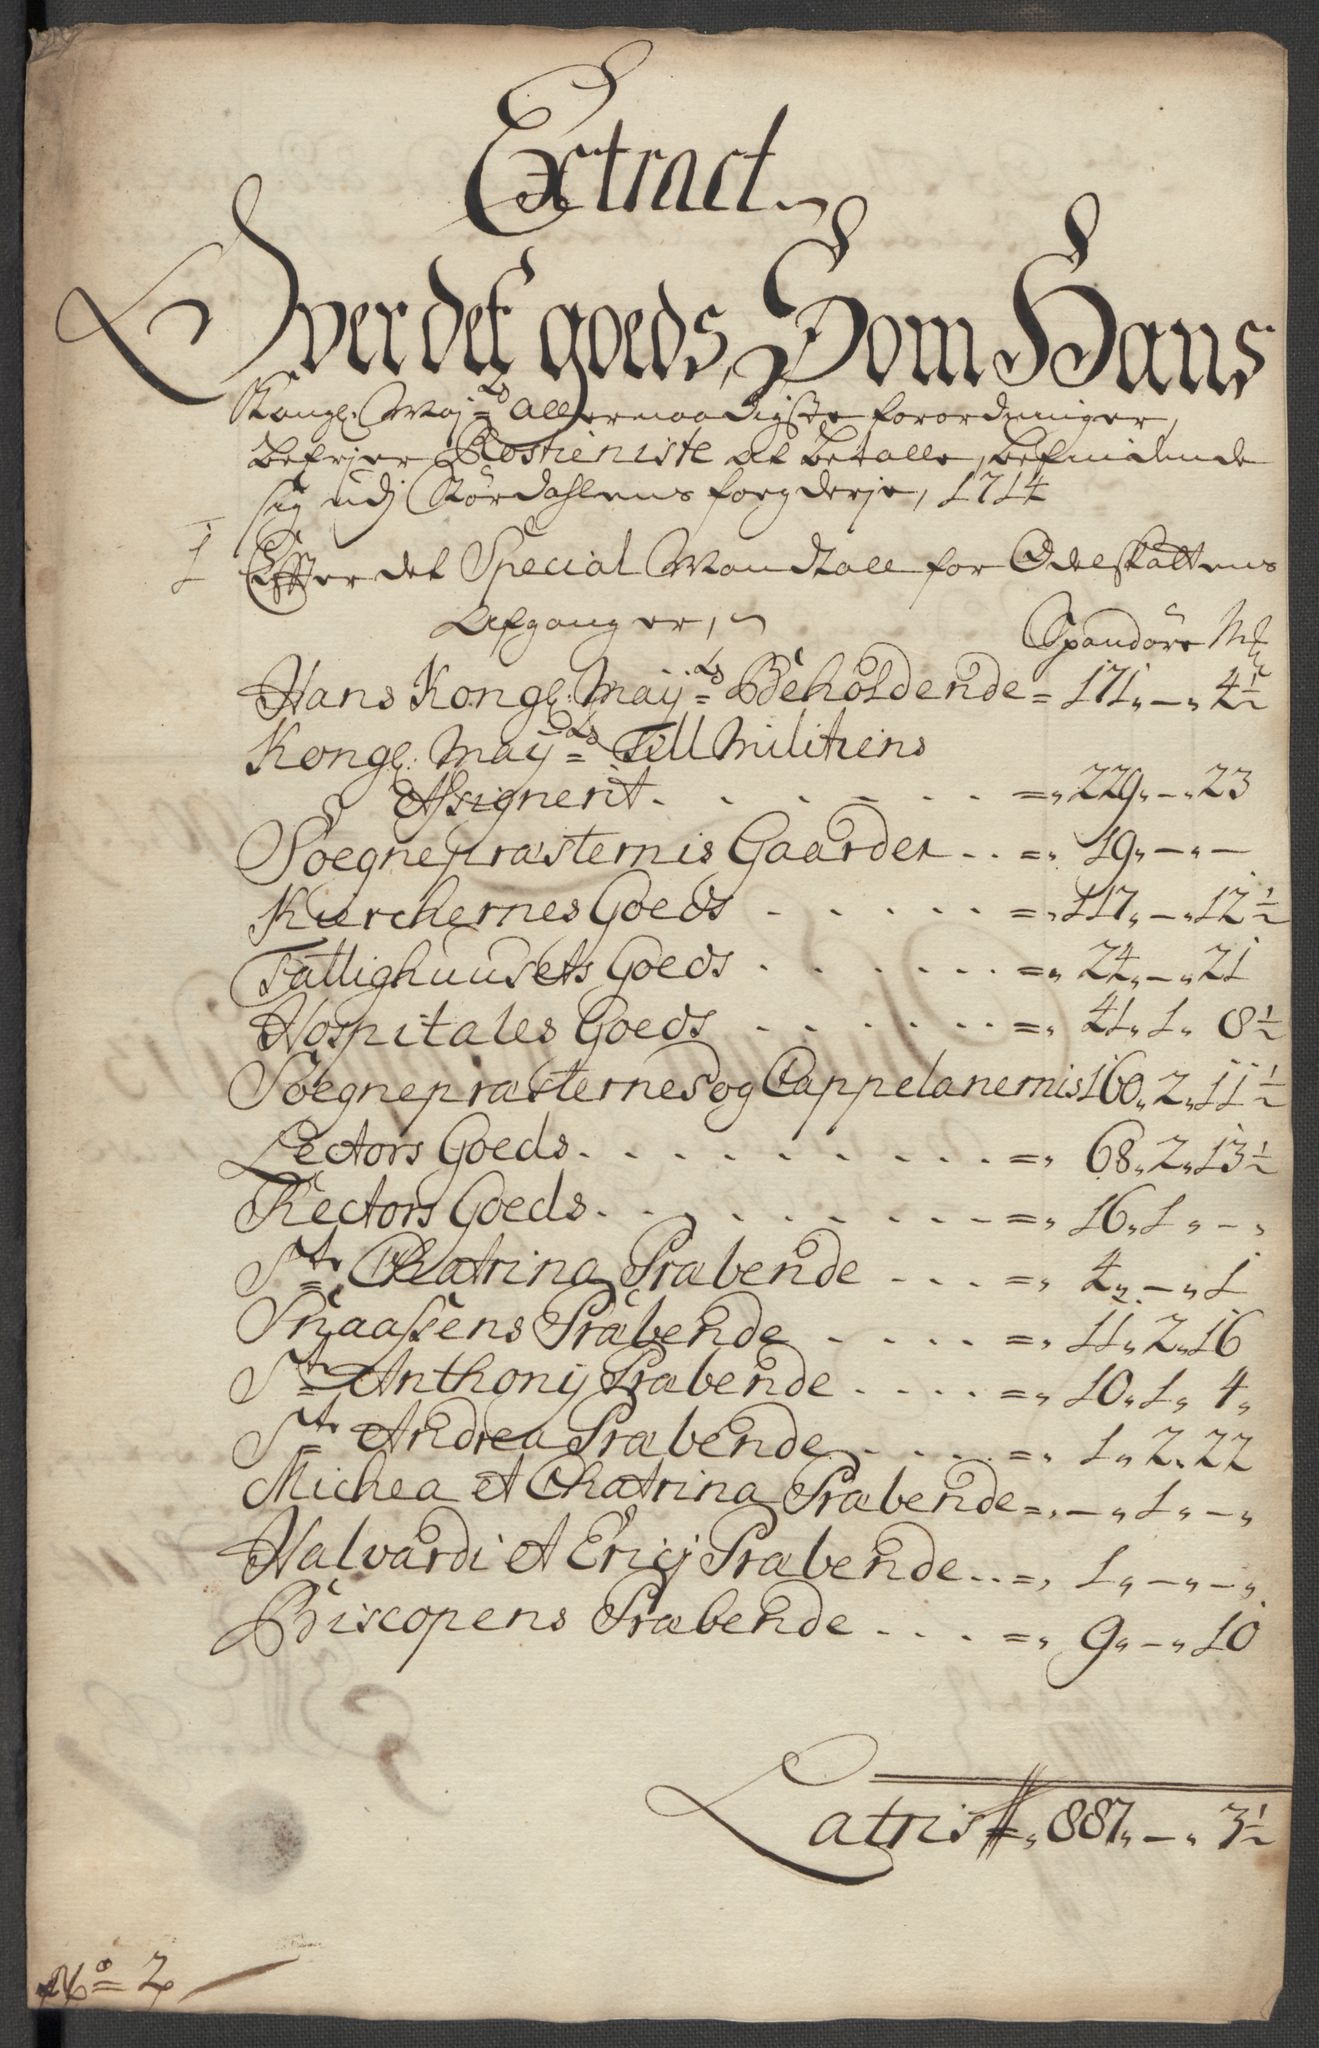 Extract
Over det goeds, Som Hans
Kongl: Maj:ts allernaadigste forordninger,
befrier Rostieniste at betalle, befindende
sig udj Størdahlens fogderje, 1714
1 Effter det Special Mandtall for Odelskattens
Afgang er,
Spandøre Mk
Hans Kongl: Maij:ts Beholdende = 171 „ — „ 4½
Kongl: Maij:ts Till Militiens
Assignerit . . . . . . . =„ 229 „ — „ 23
Soegnepræsternis Gaarder . . =„ 19 „ — „ —
Kierchernes Goeds . . . . . =„ 117 „ — „ 12½
Fattighuusets Goeds . . . . . =„ 24 „ — „ 21
Hospitales Goeds . . . . . =„ 41 „ 1 „ 8½
Soegnepræsternes og Cappelanernis 160 „ 2 „ 11½
Lectors Goeds . . . . . . . . =„ 68 „ 2 „ 13½
Rectors Goeds . . . . . . . . =„ 16 „ 1 „ — „
St: Chatrina Præbende . . . =„ 4 „ — „ 1
Snaassens Præbende . . . . =„ 11 „ 2 „ 16
St: Anthonij Præbende . . . . =„ 10 „ 1 „ 4 „
St: Andrea Præbende . . . . =„ 1 „ 2 „ 22
Michea et Chatrina Præbende =„ — „ 1 „ — „
Halvardi et Ericj Præbende . . =„ 1 „ — „ — „
Biscopens Præbende . . . =„ 9 „ — „ 10
Latris =„ 887 „ — „ 3½
No= 2